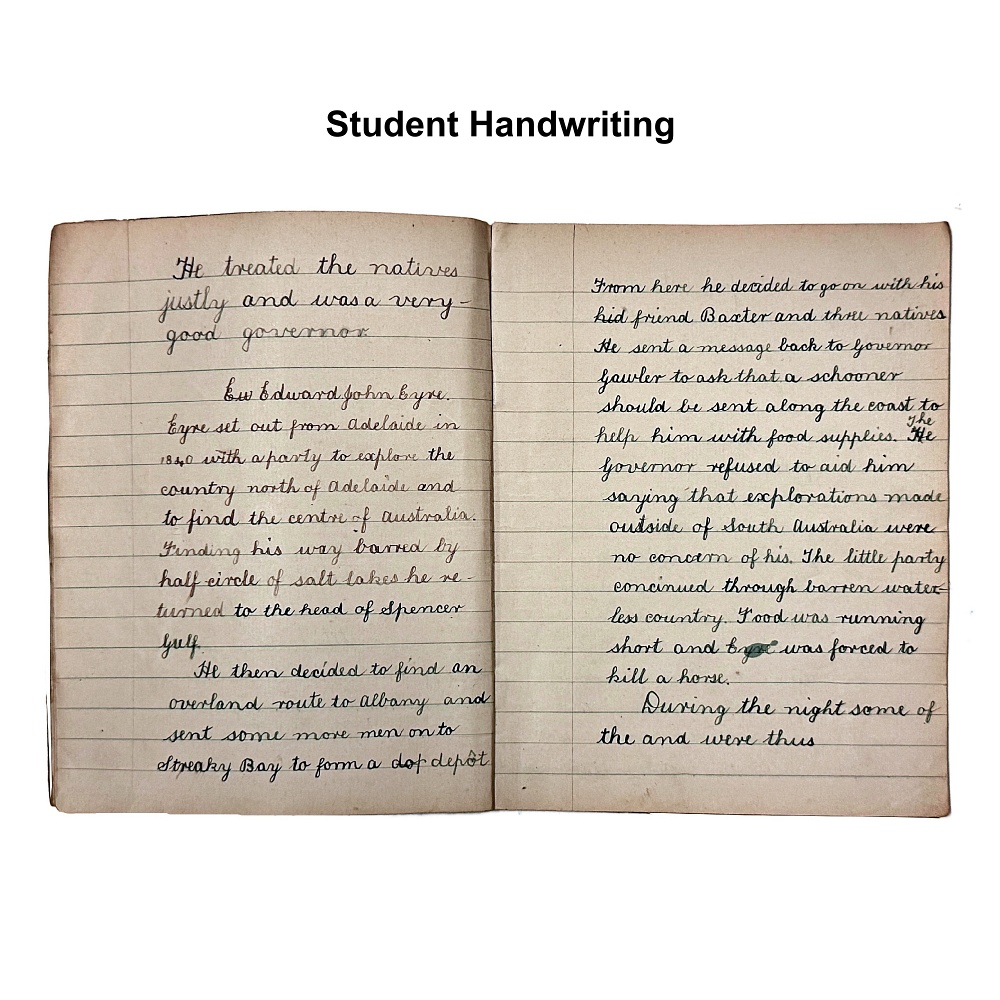 Student Handwriting
He treated the natives
justly and was a very-
good governor.
Ew Edward John Eyre.
Eyre set out from Adelaide in
1840 with a party to explore the
country north of Adelaide and
to find the centre of Australia.
Finding his way barred by
half circle of salt lakes he re-
turned to the head of Spencer
Gulf.
He then decided to find an
overland route to Albany and
sent some more men on to
Streaky Bay to form a dop depôt
From here he decided to go on with his
hid friend Baxter and three natives
He sent a message back to Governor
Gawler to ask that a schooner
should be sent along the coast to
The
help him with food supplies. He
Governor refused to aid him
saying that explorations made
outside of South Australia were
no concern of his. The little party
concinued through barren water-
less country. Food was running
short and Eyre was forced to
kill a horse.
During the night some of
the and were thus